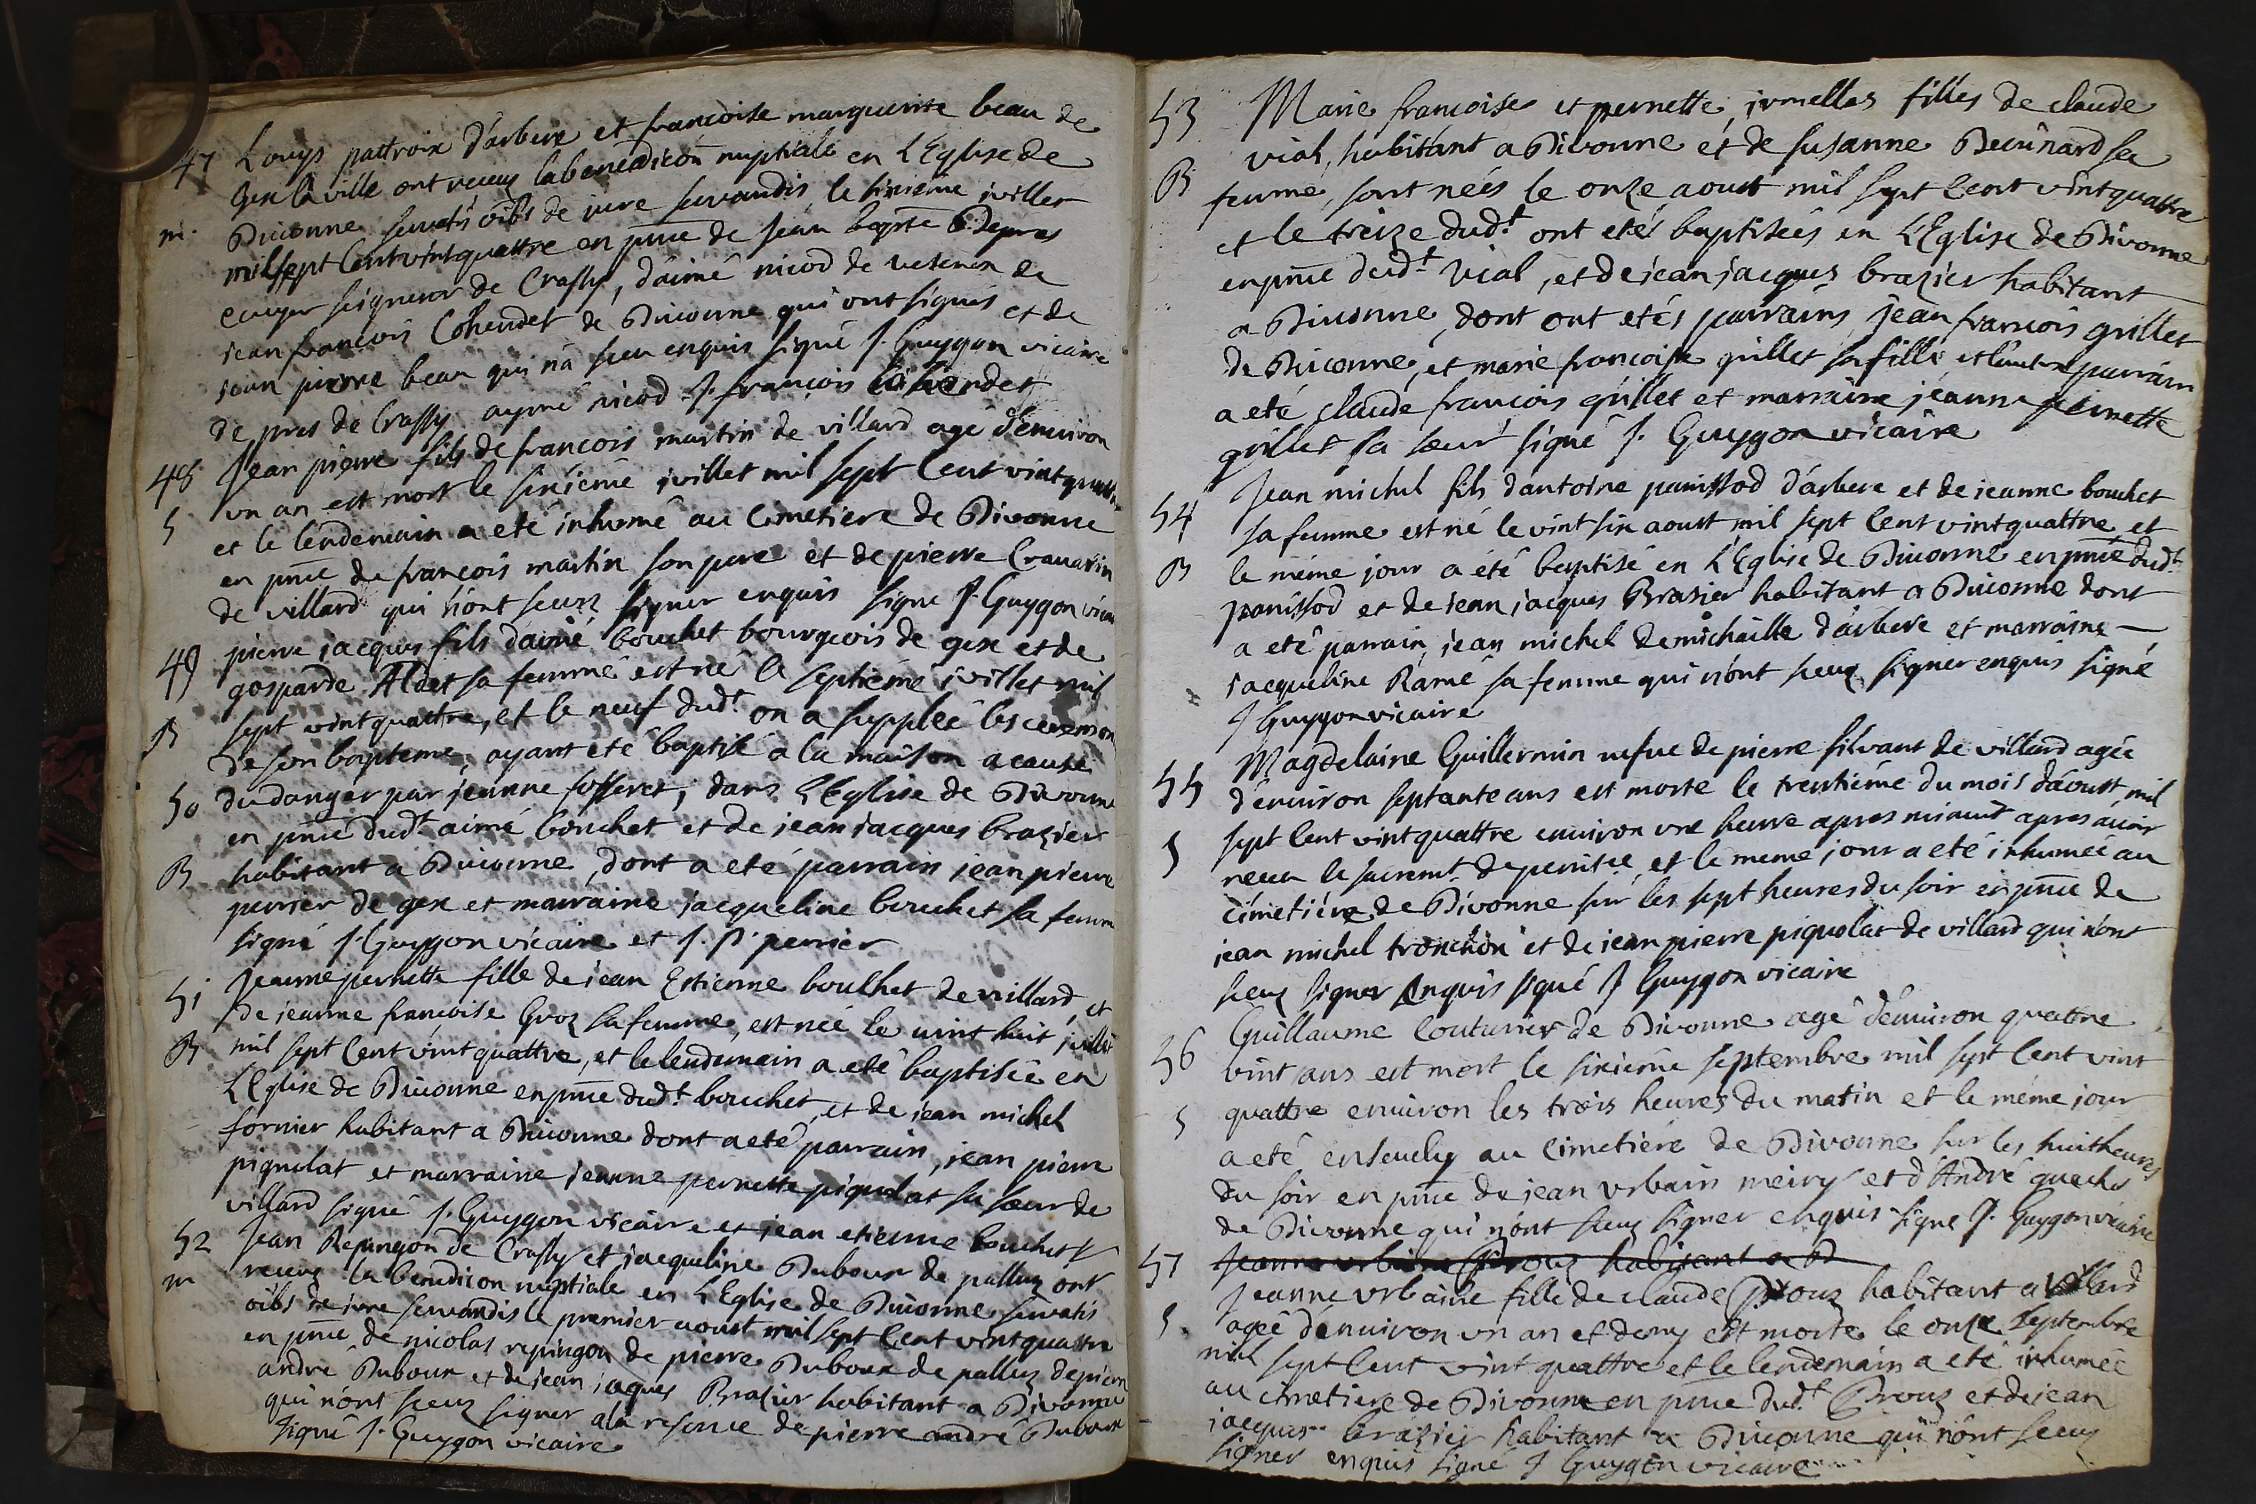 47 Louys pattroix d'arbere et francoise marguerite beau de
Gex la ville ont receu la benediction nuptiale en L'Eglise de
m. Divonne servatis oibs de iure servandis le sixieme iuillet
mil sept Cent vint quattre en pnce de Jean baptte Depres
ecuyer seigneur de Crassy, d'aimé nicod de vesenex de
jean francois Cohendet de Divonne qui ont signés et de
jean pierre beau qui n'a sceu enquis signé J. Guygon vicaire
de pres de Crassy aymé nicod J. françois Cohendet
48 Jean pierre fils de francois martin de villard agé d'environ
un an est mort le sixiéme iuillet mil sept Cent vint quattre
S et le lendemain a eté inhumé au Cimetiere de Divonne
en pnce de françois martin son pere et de pierre Cravarin
de villard qui n'ont sceuz signer enquis signé J. Guygon vicai
49 pierre jacques fils d'aimé bouchet bourgeois de gex et de
gasparde Aldet sa femme est né le septiéme iuillet mil
B sept vint quattre, et le neuf dudt on a supplée les ceremon
de son bapteme, ayant eté baptisé a la maison a cause
50 du danger par jeanne fosseret, dans L'Eglise de Divonne
en pnce dudt aimé bouchet et de jean jacques brazier
B habitant a Divonne, dont a eté parrain jean pierre
perrier de gex et marraine jacqueline bouchet sa femme
signé J. Guygon vicaire et J. P. perrier
51 Jeanne pernette fille de jean Estienne bouchet de villard, et
de jeanne françoise Groz sa femme, est née le vint huit juillet
B mil sept Cent vint quattre, et le lendemain a eté baptisée en
L'Eglise de Divonne en pnce dudt bouchet, et de jean michel
fornier habitant a Divonne dont a eté parrain, jean pierre
piquelat et marraine jeanne pernette piquelat sa sœur de
villard signé J. Guygon vicaire et jean etienne bouchet
52 Jean Repingon de Crassy et jacqueline Dubour de palluz ont
m receuz la benediction nuptiale en L'Eglise de Divonne servatis
oibs de iure servandis le premier aoust mil sept Cent vint quattre
en pnce de nicolas repingon de pierre Dubour de palluz de pierre
andré Dubour et de jean jaques Brazier habitant a Divonne
qui n'ont sceuz signer a la reserve de pierre andré Dubour
signé J. Guygon vicaire
53 Marie francoise et pernette, jumelles filles de claude
vial, habitant a Divonne et de susanne Beounard sa
B femme, sont néés le onze aoust mil sept Cent vint quattre
et le treize dudt ont etés baptiséés en L'Eglise de Divonne
en pnce dudt Vial, et de jean jacques brazier habitant
a Divonne, dont ont etés parrains, jean francois grillet
de Divonne, et marie francoise grillet sa fille et l'autre parrain
a eté claude francois grillet et marraine jeanne pernette
grillet sa sœur, signé J. Guygon vicaire
54 Jean michel fils d'antoine panissod d'arbere et de jeanne bouchet
sa femme est né le vint six aoust mil sept Cent vint quattre et
B le même jour a été baptisé en L'Eglise de Divonne en pnce dudt
panissod et de jean jacques Brasier habitant a Divonne dont
a eté parrain jean michel demichaille d'arbere et marraine
jacqueline Ramé sa femme qui n'ont sceuz signer enquis signé
J Guygon vicaire
55 Magdelaine Guillermin vefve de pierre silvant de villard agée
d'environ septante ans est morte le trentiéme du mois d'aoust mil
S sept Cent vint quattre environ une heure apres minuit apres avoir
receu le sacremt de penitce et le meme jour a eté inhumée au
cimetiére de Divonne sur les sept heures du soir en pnce de
jean michel tronchon et de jean pierre piquelat de villard qui n'ont
sceuz signer Enquis signé J Guygon vicaire
56 Guillaume Couturier de Divonne agé d'environ quattre
vint ans est mort le sixiéme septembre mil sept Cent vint
S quattre environ les trois heures du matin et le même jour
a eté ensevely au Cimetiére de Divonne sur les huit heures
du soir en pnce de jean urbain meiry et d'André gueche
de Divonne qui n'ont sceuz signer enquis signé J. Guygon vicaire
57 Jeanne urbaine Prouz habitant a D
Jeanne urbaine fille de claude Prouz habitant a villard
S. agée d'environ un an et demy est morte le onze septembre
mil sept Cent vint quattre et le lendemain a eté inhumée
au cimetiere de Divonne en pnce dudt Prouz et de jean
jacques brazier habitant a Divonne qui n'ont sceuz
signer enquis signé J Guygon vicaire